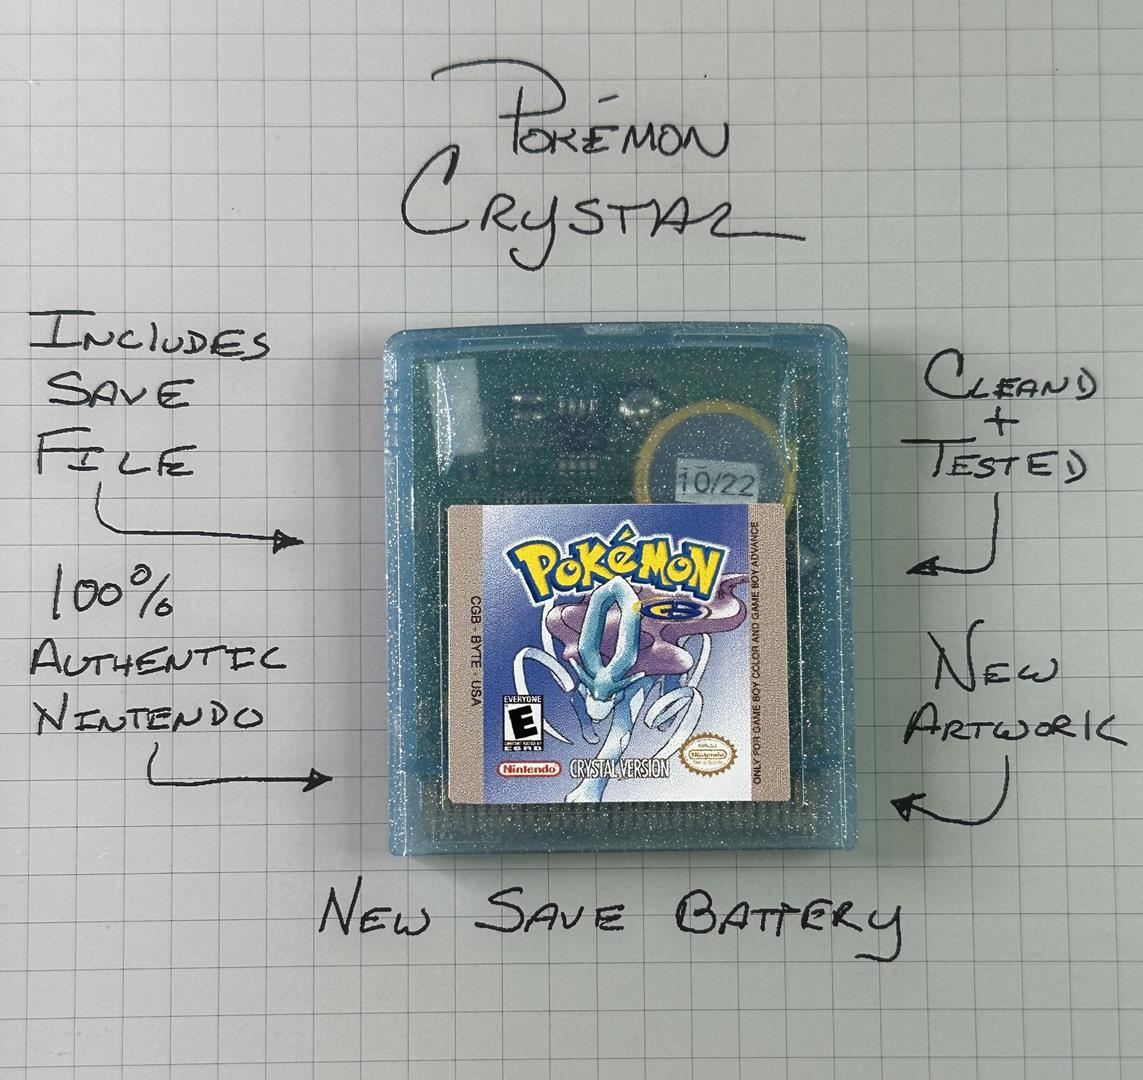 POKÉMON
CRYSTAL
INCLUDES
SAVE
FILE
100%
AUTHENTIC
NINTENDO
CLEAND
+
TESTED
NEW
ARTWORK
10/22
POKéMON
CGB - BYTE - USA
ONLY FOR GAME BOY COLOR AND GAME BOY ADVANCE
EVERYONE
E
ESRB
Nintendo
CRYSTAL VERSION
Official
Nintendo
NEW SAVE BATTERY